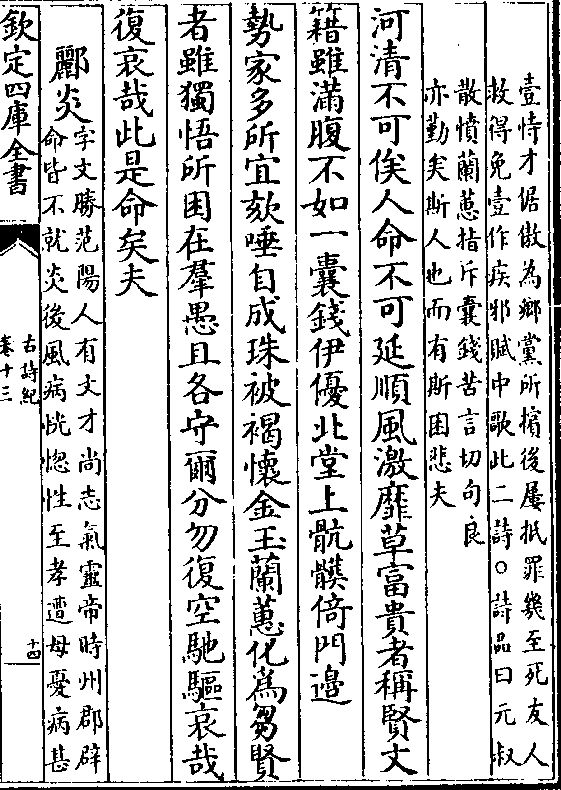 壹恃才倨傲為鄉黨所擯後屢抵罪幾至死友人
救得免壹作疾邪賦中歌此二詩○詩品曰元叔
散憤蘭蕙指斥囊錢苦言切句良
亦勤矣斯人也而有斯困悲夫
河清不可俟人命不可延順風激靡草富貴者稱賢文
籍雖滿腹不如一囊錢伊優北堂上骯髒倚門邊
勢家多所宜欬唾自成珠被褐懷金玉蘭蕙化為芻賢
者雖獨悟所困在羣愚且各守爾分勿復空馳驅哀哉
復哀哉此是命矣夫
酈炎
字文勝范陽人有文才尚志氣靈帝時州郡辟
命皆不就炎後風病恍惚性至孝遭母憂病甚
欽定四庫全書
古詩紀
卷十三
十四